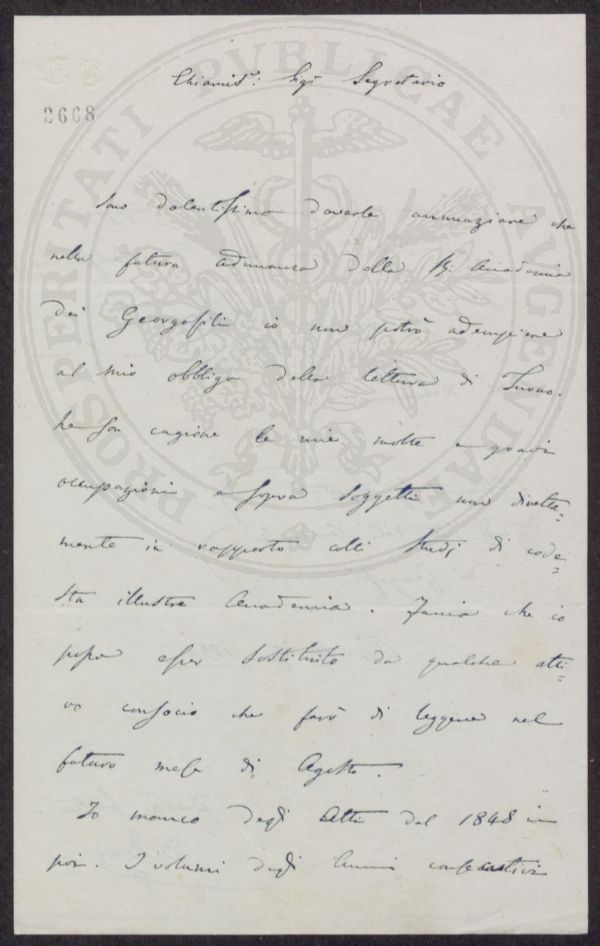 PROSPERITATI PVBLICAE AVGENDAE
2668
Chiaris.º Sigr Segretario
Sono dolentissimo doverle annunziare che
nella futura adunanza della R. Accademia
dei Georgofili io non potrò adempiere
al mio obbligo della lettura di Turno.
Ne son cagione le mie molte e gravi
occupazioni e sopra soggetti non diretta=
mente in rapporto colli studj di code=
sta illustre Accademia. Faccia che io
possa esser sostituito da qualche atti=
vo consocio che farò di leggere nel
futuro mese di Agosto.
Io manco degli Atti dal 1848 in
poi. I volumi degli Anni consecutivi